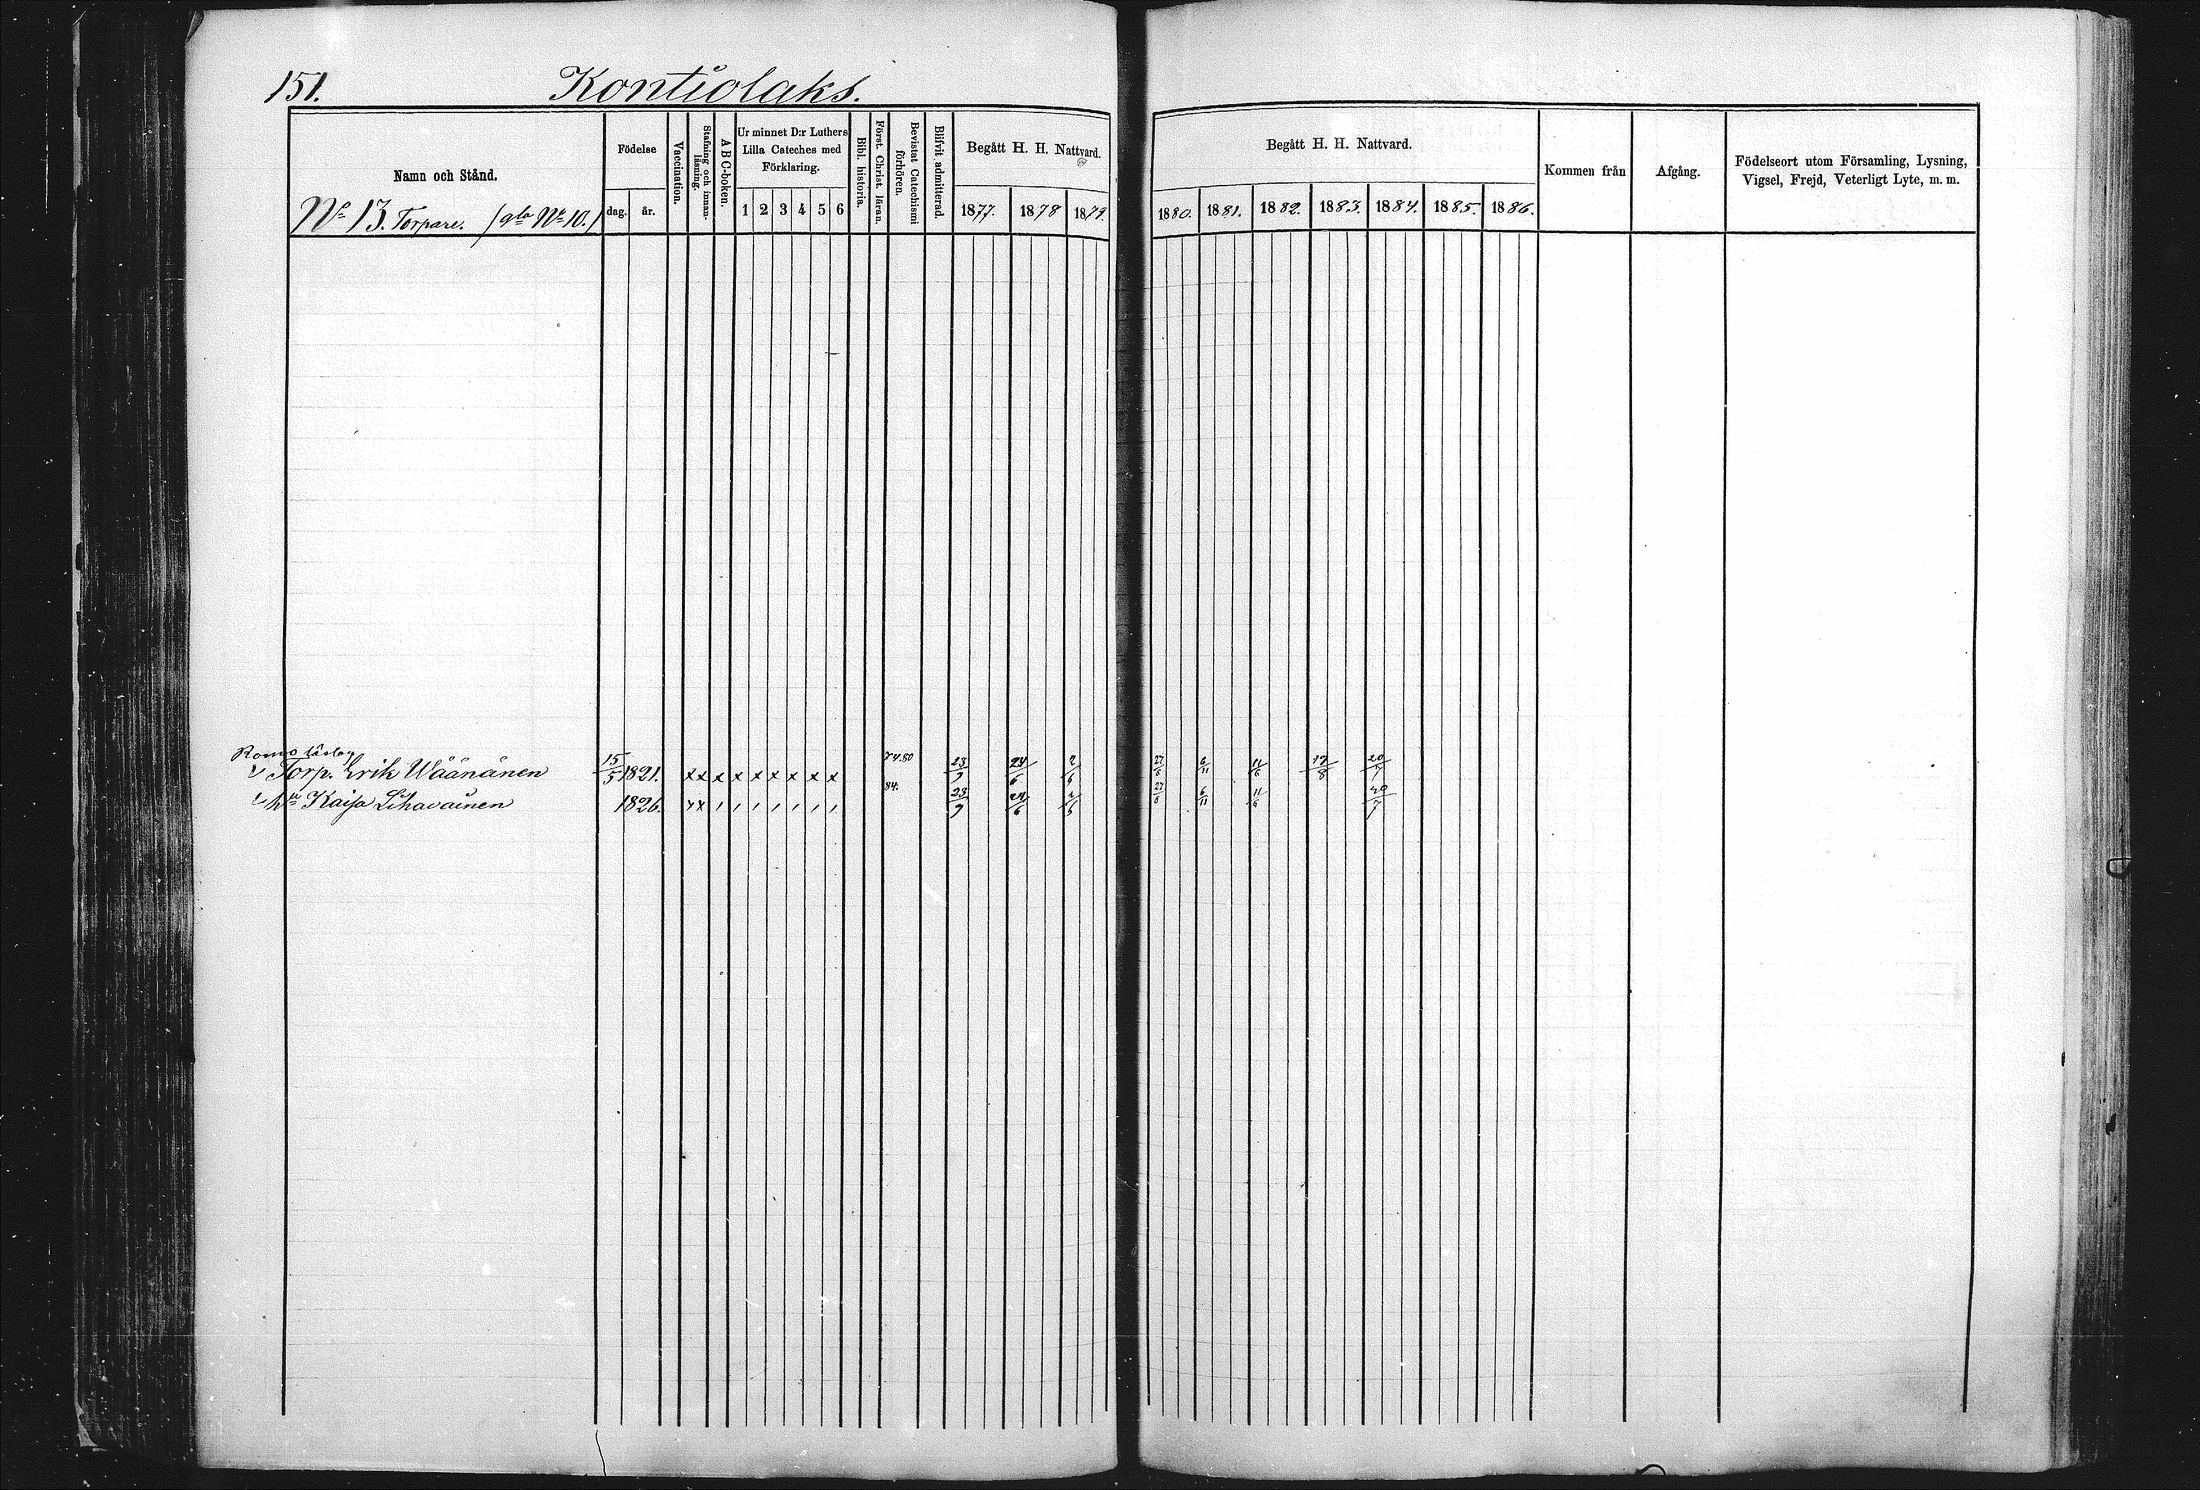 151. Kontiolaks.
Namn och Stånd.
Nº 13. Torpare. (gla Nº 10.)
Födelse
dag. år.
Vaccination.
Stafning och innan-läsning.
A B C-boken.
Ur minnet D:r Luthers
Lilla Cateches med
Förklaring.
1 2 3 4 5 6
Bibl. historia.
Först. Christ. läran.
Bevistat Catechismi förhören.
Blifvit admitterad.
Begått H. H. Nattvard.
1877. 1878 1879.
Begått H. H. Nattvard.
1880. 1881. 1882. 1883. 1884. 1885. 1886.
Kommen från
Afgång.
Födelseort utom Församling, Lysning,
Vigsel, Frejd, Veterligt Lyte, m. m.
Torp. Erik Wäänänen 15/5 1821. x x x x x x x x x 74.80 23/9 24/6 2/6 27/6 6/11 11/6 12/8 20/7
hu Kaisa Lihavainen 1826. x x 84. 23/9 24/6 2/6 27/6 6/11 11/6 20/7